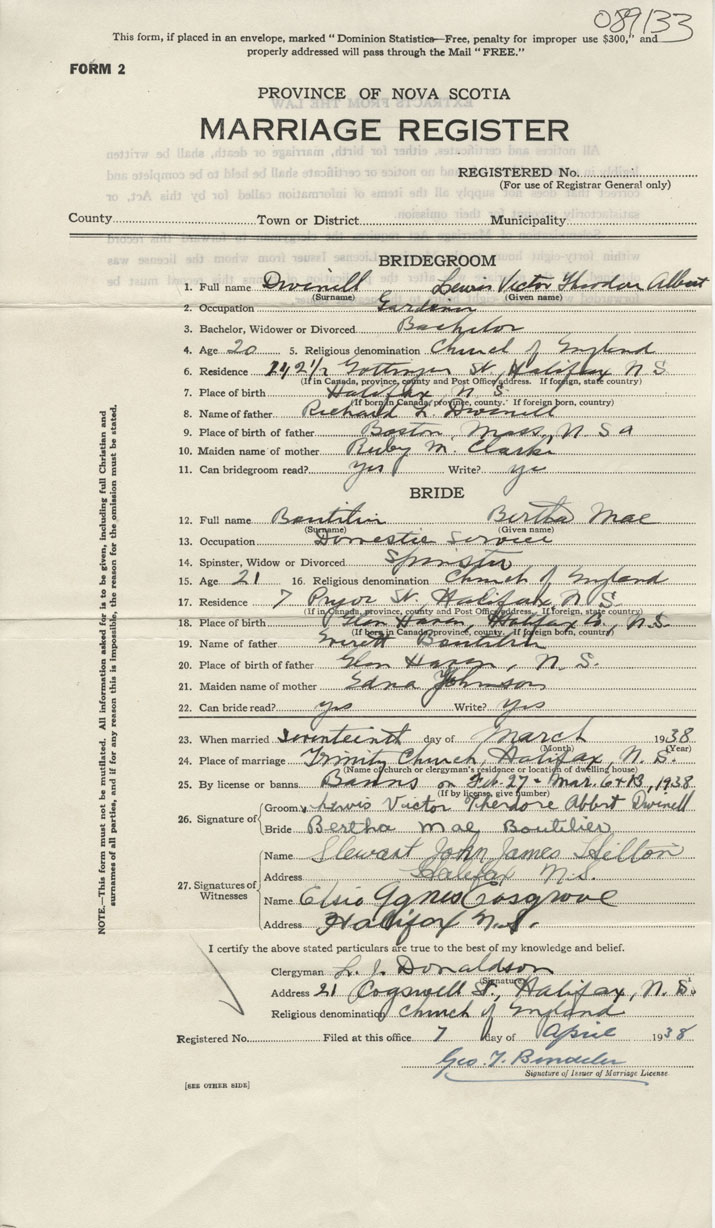 089133
This form, if placed in an envelope, marked "Dominion Statistics—Free, penalty for improper use $300," and
properly addressed will pass through the Mail "FREE."
FORM 2
PROVINCE OF NOVA SCOTIA
MARRIAGE REGISTER
REGISTERED No.
(For use of Registrar General only)
County Town or District Municipality
BRIDEGROOM
1. Full name Dwinell Lewis Victor Theodore Albert
(Surname) (Given name)
2. Occupation Gardener
3. Bachelor, Widower or Divorced Bachelor
4. Age 20 5. Religious denomination Church of England
6. Residence 242 1/2 Gottingen St, Halifax N S
(If in Canada, province, county and Post Office address. If foreign, state country)
7. Place of birth Halifax N. S.
(If born in Canada, province, county. If foreign born, country)
8. Name of father Richard L. Dwinell
9. Place of birth of father Boston, Mass, U S a
10. Maiden name of mother Ruby M. Clarke
11. Can bridegroom read? yes Write? yes
BRIDE
12. Full name Boutilier Bertha Mae
(Surname) (Given name)
13. Occupation Domestic Service
14. Spinster, Widow or Divorced Spinster
15. Age 21 16. Religious denomination Church of England
17. Residence 7 Pryor St, Halifax, N. S.
(If in Canada, province, county and Post Office address. If foreign, state country)
18. Place of birth Glen Haven, Halifax Co., N. S.
(If born in Canada, province, county. If foreign born, country)
19. Name of father Everett Boutilier
20. Place of birth of father Glen Haven, N. S.
21. Maiden name of mother Edna Johnson
22. Can bride read? yes Write? yes
23. When married seventeenth day of March 1938
(Month) (Year)
24. Place of marriage Trinity Church, Halifax, N. S.
(Name of church or clergyman's residence or location of dwelling house)
25. By license or banns Banns on Feb. 27 & Mar. 6 & 13, 1938
(If by license, give number)
26. Signature of Groom Lewis Victor Theodore Albert Dwinell
Bride Bertha Mae Boutilier
27. Signatures of Witnesses
Name Stewart John James Hilton
Address Halifax N.S.
Name Elsie Agnes Cosgrove
Address Halifax N.S.
I certify the above stated particulars are true to the best of my knowledge and belief.
Clergyman L. J. Donaldson
(Signature)
Address 21 Cogswell St, Halifax, N. S.
Religious denomination Church of England
Registered No. Filed at this office 7 day of April 1938
Signature of Issuer of Marriage License
[SEE OTHER SIDE]
NOTE.—This form must not be mutilated. All information asked for is to be given, including full Christian and
surnames of all parties, and if for any reason this is impossible, the reason for the omission must be stated.